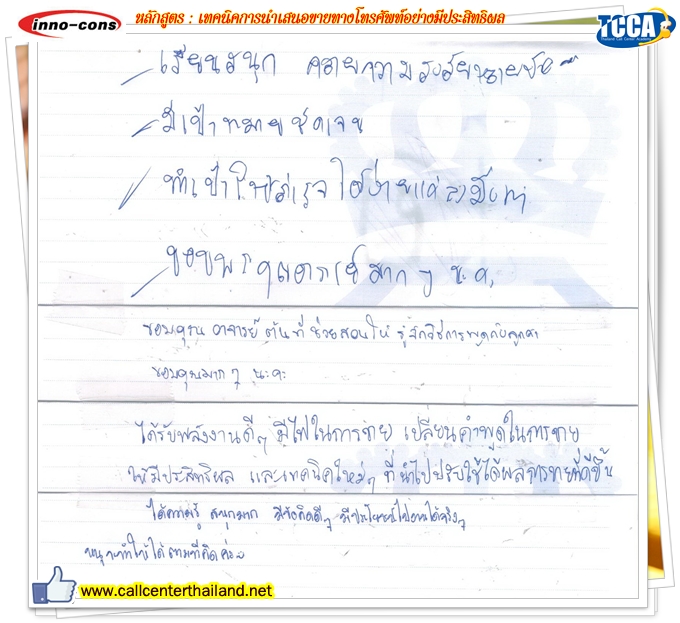 inno-cons
หลักสูตร : เทคนิคการนำเสนอขายทางโทรศัพท์อย่างมีประสิทธิผล
TCCA
Thailand Call Center Academy
เรียนสนุก คลายความ
มีเป้าหมายชัดเจน
ทำเป้าให้สำเร็จ ได้ง่ายแค่ลงมือทำ
ขอบพระคุณอาจารย์มาก ๆ นะคะ
ขอบคุณ อาจารย์ ต้นที่ช่วยสอนให้ รู้จักวิธีการพูดกับลูกค้า
ขอบคุณมาก ๆ นะคะ
ได้รับพลังงานดีๆ มีไฟในการขาย เปลี่ยนคำพูดในการขาย
ให้มีประสิทธิผล และเทคนิคใหม่ๆ ที่นำไปปรับใช้ได้ผลการขายที่ดีขึ้น
ได้ความรู้ สนุกมาก มีข้อคิดดีๆ มีประโยชน์ไปงานได้จริงๆ
จะทำให้ได้ตามที่คิดค่ะ
www.callcenterthailand.net